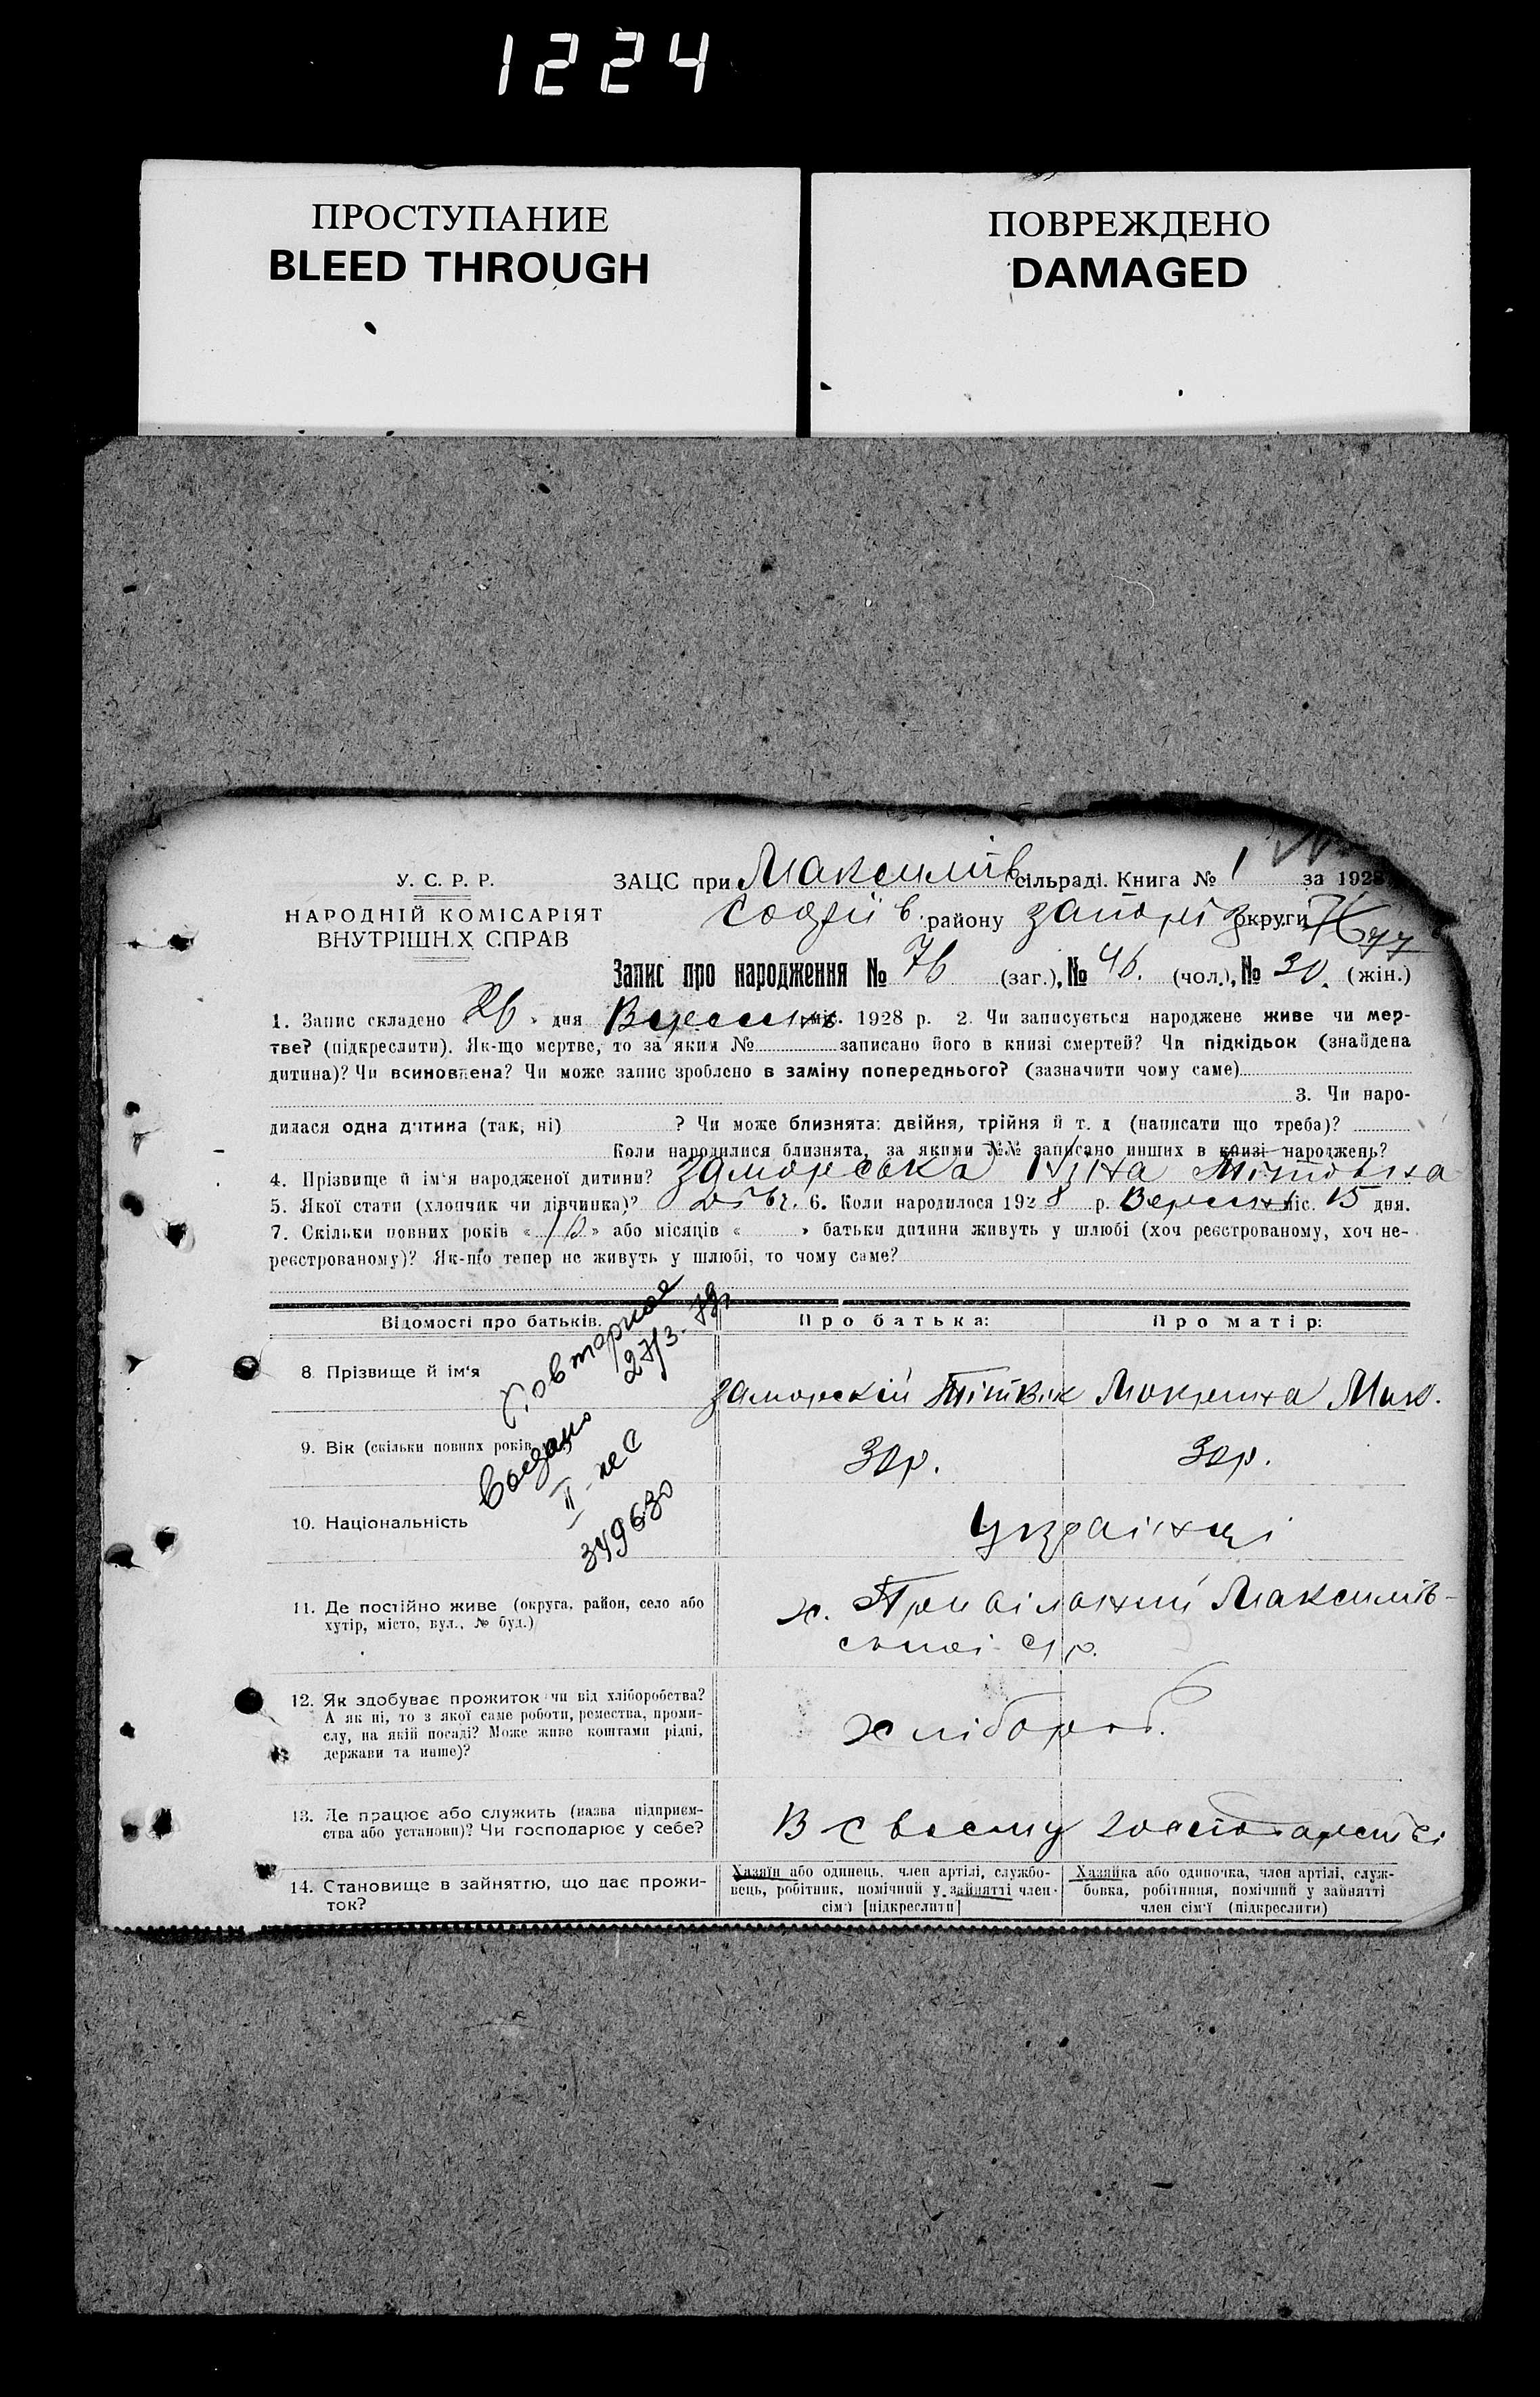 1224
ПРОСТУПАНИЕ
BLEED THROUGH
ПОВРЕЖДЕНО
DAMAGED
У. С. Р. Р.
НАРОДНІЙ КОМІСАРІЯТ
ВНУТРІШНІХ СПРАВ
ЗАЦС при Максимів сільраді. Книга № 1 за 1928
Софіїв району Запоріз округи 77
Запис про народження № 76 (заг.), № 46. (чол.), № 30. (жін.)
1. Запис складено «26» дня Вересня міс. 1928 р. 2. Чи записується народжене живе чи мер-
тве? (підкреслити). Як-що мертве, то за яким № записано його в книзі смертей? Чи підкідьок (знайдена
дитина)? Чи всиновлена? Чи може запис зроблено в заміну попереднього? (зазначити чому саме)
3. Чи наро-
дилася одна дитина (так, ні) ? Чи може близнята: двійня, трійня й т. д (написати що треба)?
Коли народилися близнята, за якими №№ записано инших в книзі народжень?
4. Прізвище й ім'я народженої дитини? Заморська
5. Якої стати (хлопчик чи дівчинка)? Дівч. 6. Коли народилося 1928 р. Вересня міс. 15 дня.
7. Скільки повних років «10» або місяців « » батьки дитини живуть у шлюбі (хоч реєстрованому, хоч не-
реєстрованому)? Як-що тепер не живуть у шлюбі, то чому саме?
Відомості про батьків. Про батька: Про матір:
Повторное
27/3-79г
8. Прізвище й ім'я Заморский Мокрина Мик.
9. Вік (скільки повних років) 30р. 30р.
349630
10. Національність Українці
11. Де постійно живе (округа, район, село або
хутір, місто, вул., № буд.)
х. Привільний Максимів-
ської с/р.
12. Як здобуває прожиток чи від хліборобства?
А як ні, то з якої саме роботи, ремества, проми-
слу, на якій посаді? Може живе коштами рідні,
держави та инше)?
хлібороб.
13. Де працює або служить (назва підприєм-
ства або установи)? Чи господарює у себе?
В своєму господарстві
14. Становище в зайняттю, що дає прожи-
ток?
Хазяїн або одинець, член артілі, службо-
вець, робітник, помічний у зайнятті член
сім'ї [підкреслити]
Хазяйка або одиночка, член артілі, служ-
бовка, робітниця, помічний у зайнятті
член сім'ї (підкреслити)